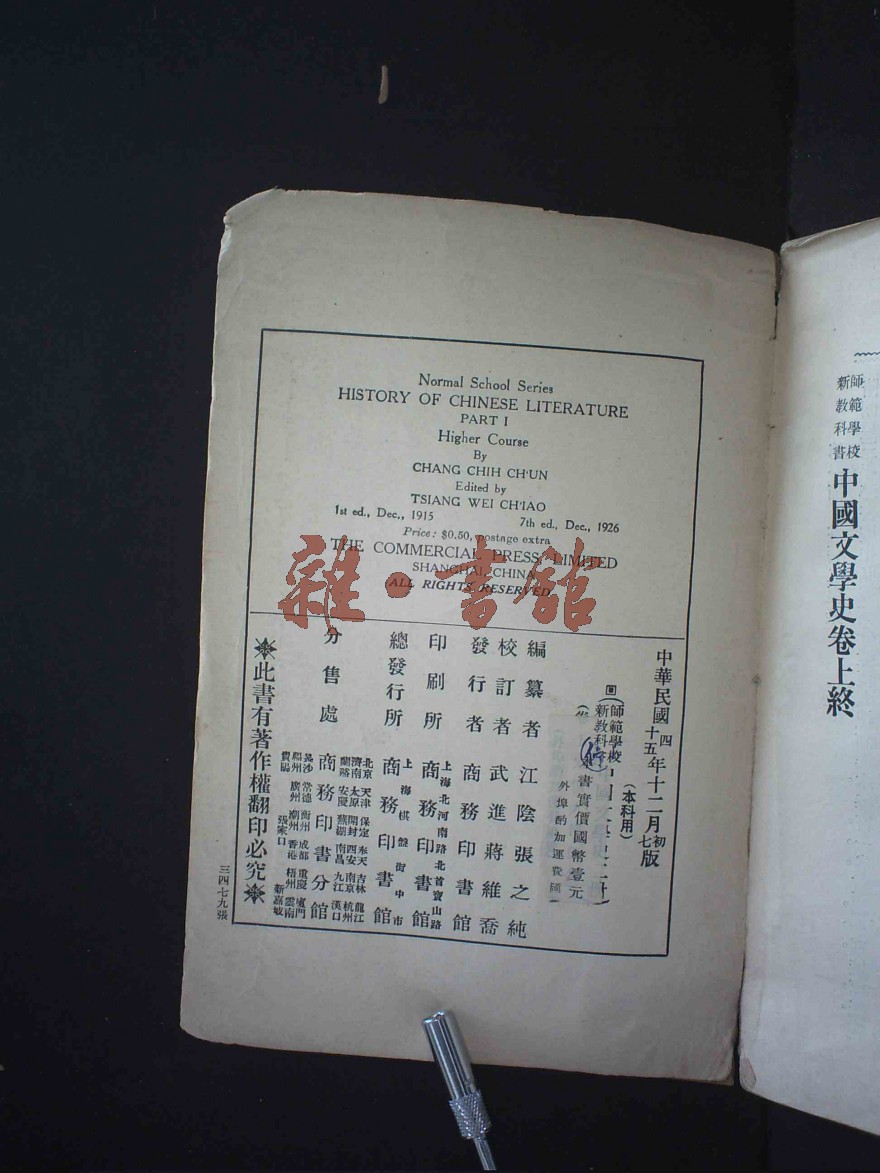 Normal School Series
HISTORY OF CHINESE LITERATURE
PART I
Higher Course
By
CHANG CHIH CH'UN
Edited by
TSIANG WEI CH'IAO
1st ed., Dec., 1915 7th ed., Dec., 1926
Price: $0.50, postage extra
THE COMMERCIAL PRESS, LIMITED
SHANGHAI, CHINA
ALL RIGHTS RESERVED
雜·書館
中華民國四年十二月初版
十五年十二月七版
師範學校
新教科書
(本科用)
書實價國幣壹元
外埠酌加運費匯
編纂者 江陰張之純
校訂者 武進蔣維喬
發行者 商務印書館
印刷所 上海北河南路北首寶山路 商務印書館
總發行所 上海棋盤街中市 商務印書館
分售處 商務印書分館
北京 天津 保定 奉天 吉林 龍江
濟南 太原 開封 西安 南京 杭州
蘭谿 安慶 蕪湖 南昌 九江 漢口
長沙 常德 衡州 成都 重慶 廈門
福州 廣州 潮州 香港 梧州 雲南
貴陽 張家口 新嘉坡
此書有著作權翻印必究
三四七九張
師範學校
新教科書
中國文學史卷上終